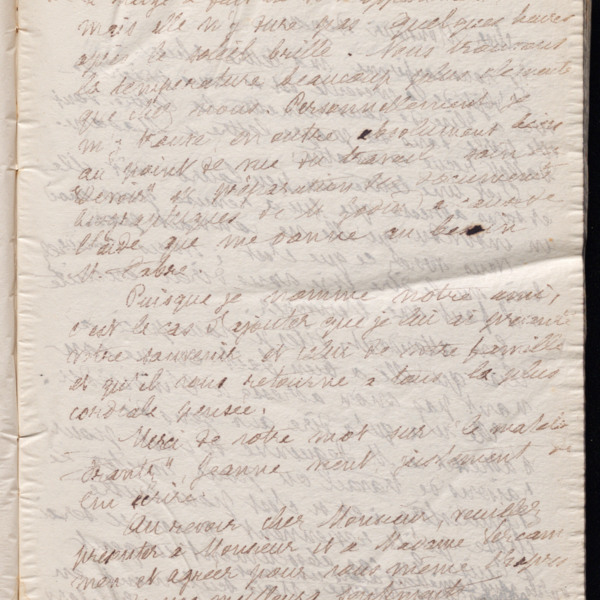 mais elle n'y dure pas. Quelques heures
après le soleil brille. Nous trouvons
la température beaucoup plus clémente
que chez nous. Personnellement je
m'y trouve en outre absolument bien
au point de vue du travail
de documents
de M. à cause de
l'aide que me donne au besoin
M. Fabre.
Puisque je nomme notre ami,
c'est le cas d'ajouter que je lui ai présenté
votre souvenir et celui de votre famille
et qu'il vous retourne à tous la plus
cordiale pensée.
Merci de votre mot sur le malade
Jeanne vient justement de
lui écrire.
Au revoir cher Monsieur, veuillez
présenter à Monsieur et à Madame
et agréer pour vous même
meilleurs sentiments